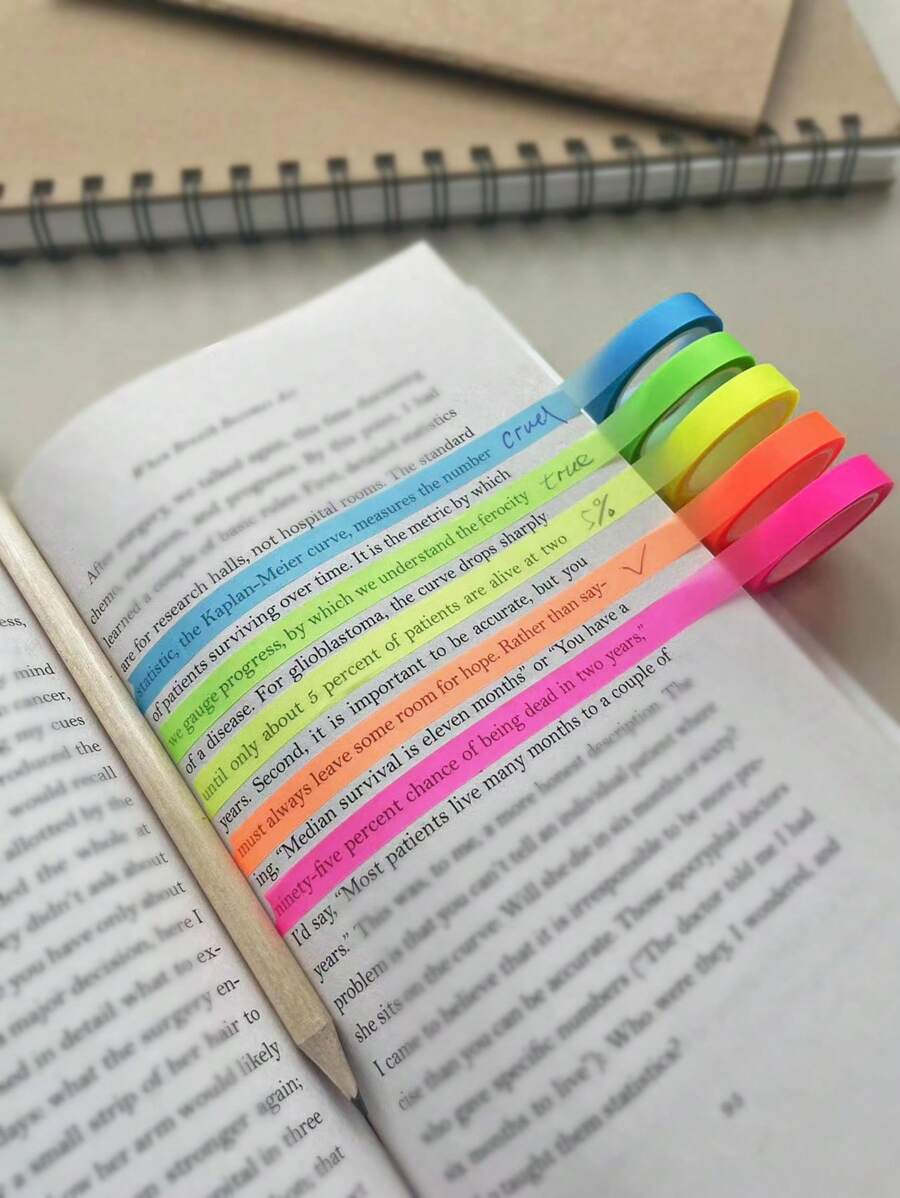 ess,
mind
cancer,
cues
roduced the
would recall
allotted by the
the whole, at
ey didn't ask about
you have only about
major decision, here I
ed in detail what to ex-
days: what the surgery en-
a small strip of her hair to
ow her arm would likely
stronger again;
in three
that
When Breath Becomes Air
After surgery, we talked again, this time discussing
chemo, radiation, and prognosis. By this point, I had
learned a couple of basic rules. First, detailed statistics
are for research halls, not hospital rooms. The standard
statistic, the Kaplan-Meier curve, measures the number cruel
of patients surviving over time. It is the metric by which
we gauge progress, by which we understand the ferocity true
of a disease. For glioblastoma, the curve drops sharply
until only about 5 percent of patients are alive at two 5%
years. Second, it is important to be accurate, but you
must always leave some room for hope. Rather than say- ✓
ing, “Median survival is eleven months” or “You have a
ninety-five percent chance of being dead in two years,”
I’d say, “Most patients live many months to a couple of
years.” This was, to me, a more honest description. The
problem is that you can’t tell an individual patient where
she sits on the curve: Will she die in six months or sixty?
I came to believe that it is irresponsible to be more pre-
cise than you can be accurate. Those apocryphal doctors
who gave specific numbers (“The doctor told me I had
six months to live”): Who were they, I wondered, and
who taught them statistics?